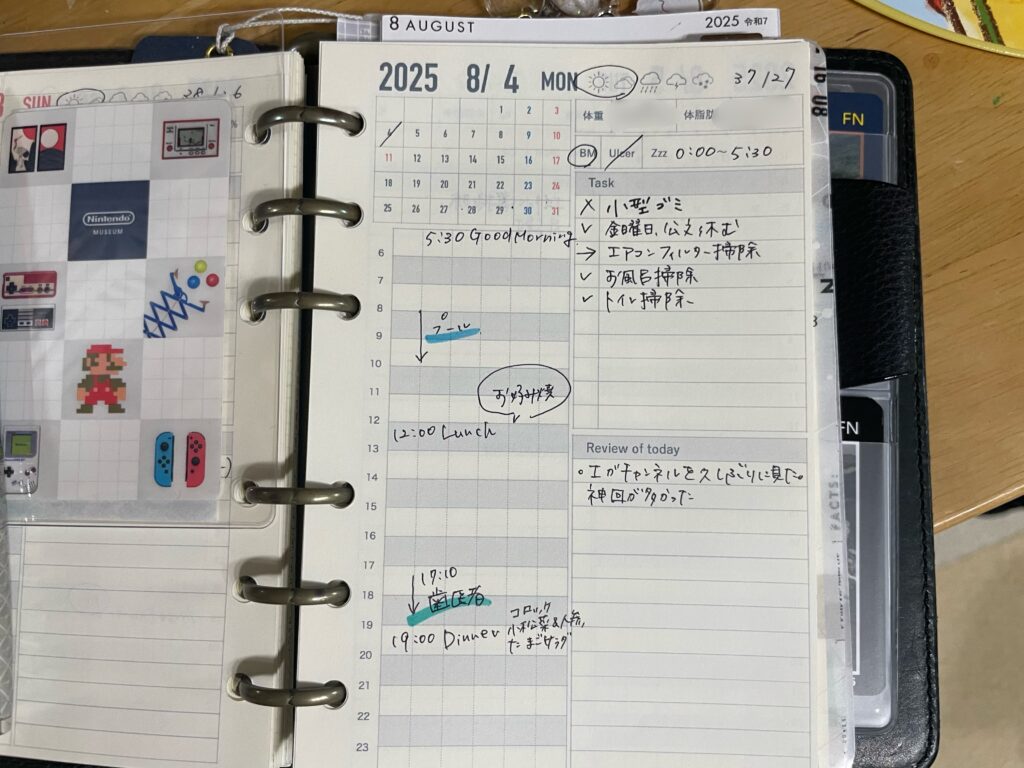 8 AUGUST
2025 令和7
SUN
28 / 26
Nintendo
MUSEUM
2025 8/4 MON
37/27
1 2 3
4 5 6 7 8 9 10
11 12 13 14 15 16 17
18 19 20 21 22 23 24
25 26 27 28 29 30 31
体重
体脂肪
BM Ulcer Zzz 0:00~5:30
Task
× 小型ゴミ
✓ 金曜日、伝え休む
→ エアコンフィルター掃除
✓ お風呂掃除
✓ トイレ掃除
5:30 Good Morning
6
7
8
プール
9
10
11
お好み焼
12
12:00 Lunch
13
14
15
16
17
17:10
歯医者
18
19
19:00 Dinner
コロッケ
小松菜&人参
たまごサラダ
20
21
22
23
Review of today
○エガチャンネルを久しぶりに見た。
神回が多かった
FN
FN
FACTS:
16
08
N